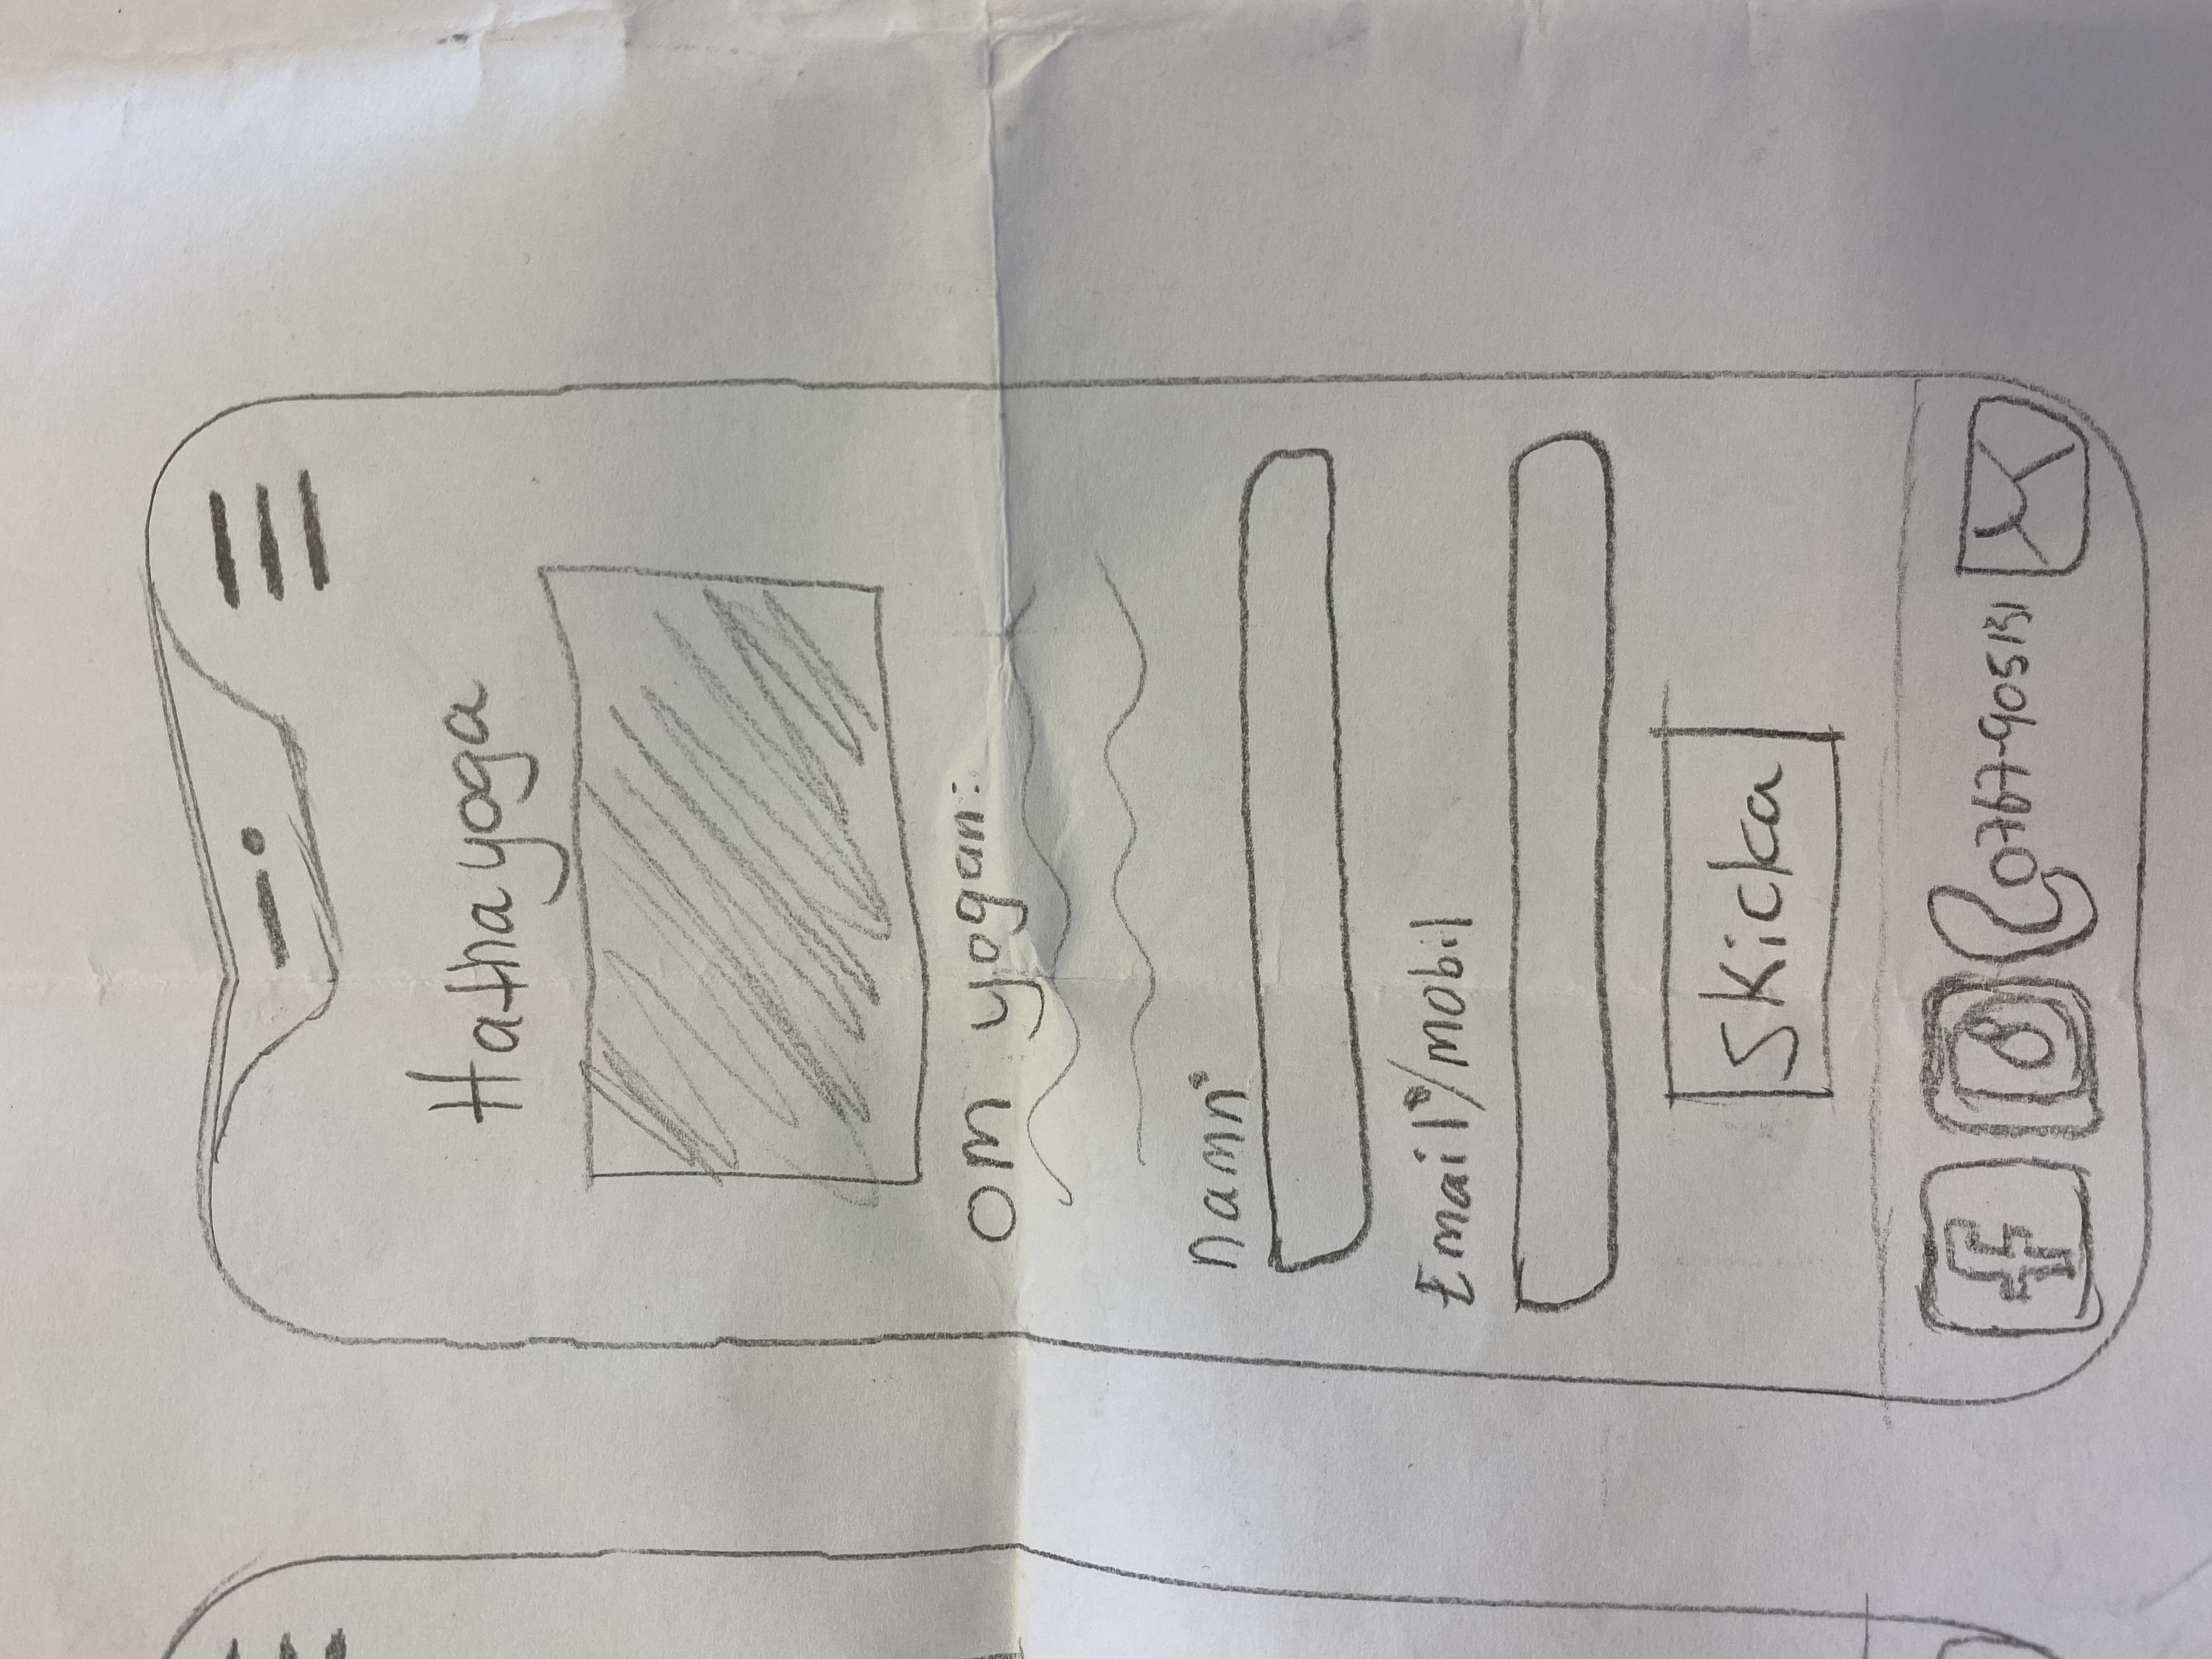 Hatha yoga
om yogan:
namn:
Email:/mobil
Skicka
f 0767-905131